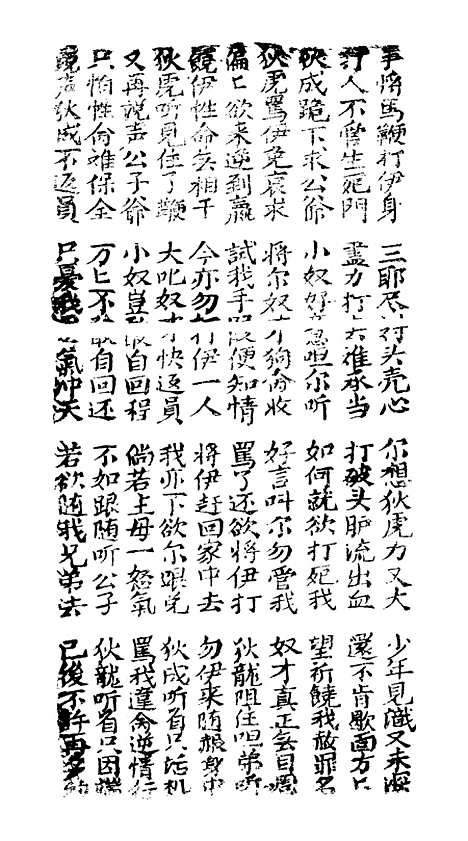 手將馬鞭打伊身 三耶尽打头壳心 尔想狄虎力又大 少年見識又未深
打人不管生死門 盡力打去准承当 打破头胪流出血 還不肯歇面方只
狄成跪下求公爺 小奴好意咀尔听 如何就欲打死我 望祈饒我赦罪名
狄虎罵伊免哀求 將尔奴才狗命收 好言叫尔勿管我 奴才真正無目周
偏匕欲来迎到羸 試我手段便知情 罵了还欲将伊打 狄龍阻住咀弟听
饒伊性命無相干 今亦勿打伊一人 将伊赶回家中去 勿伊来随赧身中
狄虎听見住了鞭 大叱奴才快返員 我亦下欲尔跟兑 狄成听着只活机
又再説声公子爺 小奴豈敢自回程 倘若主母一怒氣 罵我違命逆情行
只怕性命难保全 万匕不敢自回还 不如跟随听公子 狄龍听着只因端
狄成不返員 只憂我 氣冲天 若欲随我兄弟去 已後不許再多